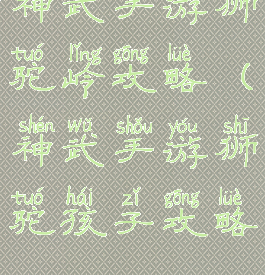 神武手游狮
tuó lǐng gōng lüè
驼岭攻略（
shén wǔ shǒu yóu shī
神武手游狮
tuó hái zǐ gōng lüè
驼孩子攻略